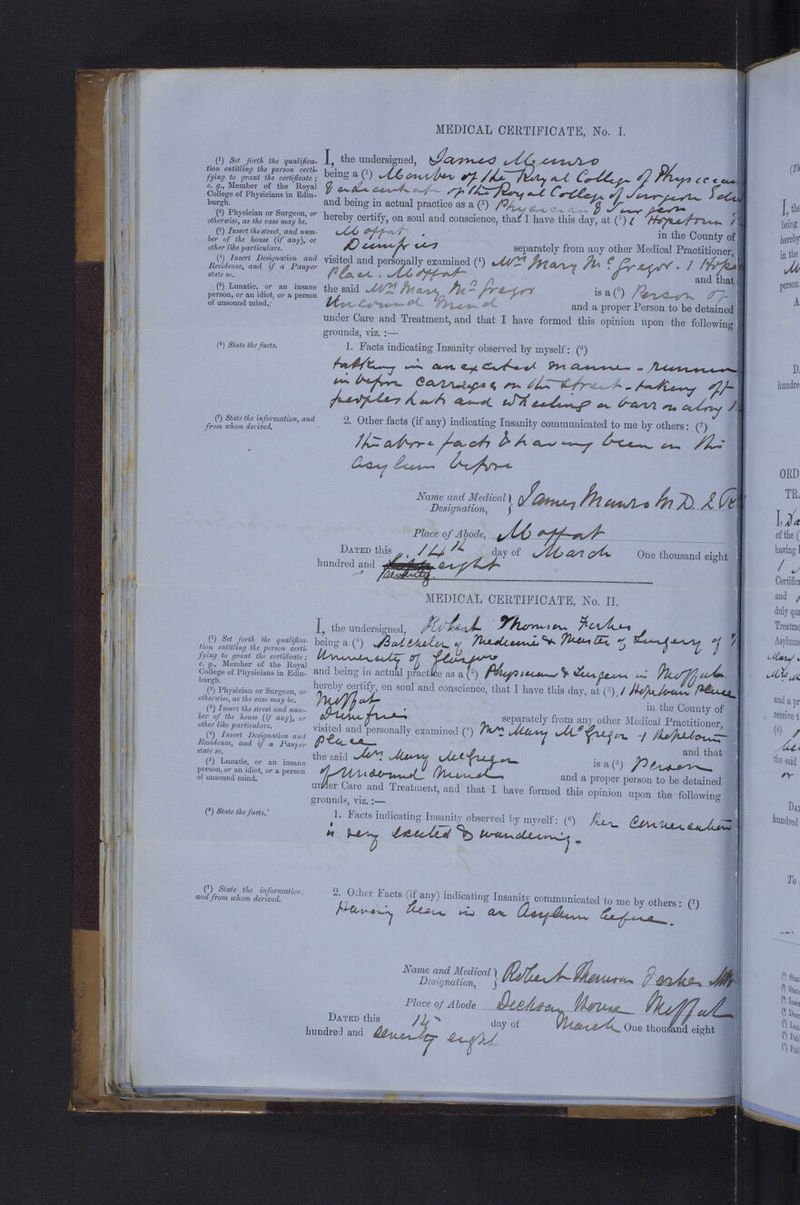 MEDICAL CERTIFICATE, No. I.
(¹) Set forth the qualifica-
tion entitling the person certi-
fying to grant the certificate;
e. g., Member of the Royal
College of Physicians in Edin-
burgh.
(²) Physician or Surgeon, or
otherwise, as the case may be.
(³) Insert the street, and num-
ber of the house (if any), or
other like particulars.
(⁴) Insert Designation and
Residence, and if a Pauper
state so.
(⁵) Lunatic, or an insane
person, or an idiot, or a person
of unsound mind.
I, the undersigned, James Munro
being a (¹) Member of the Royal College of Physicians
& Licentiate of the Royal College of Surgeons Edin
and being in actual practice as a (²) Physician & Surgeon
hereby certify, on soul and conscience, that I have this day, at (³) 1 Hopetoun
Moffat in the County of
Dumfries separately from any other Medical Practitioner,
visited and personally examined (⁴) Mrs Mary McGregor. 1 Hope
Place. Moffat and that
the said Mrs Mary McGregor is a (⁵) Person of
Unsound Mind and a proper Person to be detained
under Care and Treatment, and that I have formed this opinion upon the following
grounds, viz. :—
(⁶) State the facts.
1. Facts indicating Insanity observed by myself: (⁶)
talking in an excited manner - running
in before carriages on the street - taking off
peoples hats and wheeling a barrow along
(⁷) State the information, and
from whom derived.
2. Other facts (if any) indicating Insanity communicated to me by others: (⁷)
the above facts & having been in this
asylum before
Name and Medical Designation, James Munro M.D.
Place of Abode, Moffat
DATED this 14th day of March One thousand eight
hundred and seventy eight
MEDICAL CERTIFICATE, No. II.
(¹) Set forth the qualifica-
tion entitling the person certi-
fying to grant the certificate;
e. g., Member of the Royal
College of Physicians in Edin-
burgh.
(²) Physician or Surgeon, or
otherwise, as the case may be.
(³) Insert the street and num-
ber of the house (if any), or
other like particulars.
(⁴) Insert Designation and
Residence, and if a Pauper
state so.
(⁵) Lunatic, or an insane
person, or an idiot, or a person
of unsound mind.
I, the undersigned, Robert Thomson Forbes
being a (¹) Batchelor of Medicine & Master of Surgery of
University of Glasgow
and being in actual practice as a (²) Physician & Surgeon in Moffat
hereby certify, on soul and conscience, that I have this day, at (³) 1 Hopetoun Place
Moffat in the County of
Dumfries separately from any other Medical Practitioner,
visited and personally examined (⁴) Mrs Mary McGregor 1 Hopetoun
place and that
the said Mrs Mary McGregor is a (⁵) Person
of Unsound Mind and a proper person to be detained
under Care and Treatment, and that I have formed this opinion upon the following
grounds, viz. :—
(⁶) State the facts.
1. Facts indicating Insanity observed by myself: (⁶) Her Conversation
is very excited & wandering.
(⁷) State the information,
and from whom derived.
2. Other Facts (if any) indicating Insanity communicated to me by others: (⁷)
Having been in an Asylum before.
Name and Medical Designation, Robert Thomson Forbes MB
Place of Abode Dickson House Moffat
DATED this 14th day of March One thousand eight
hundred and seventy eight